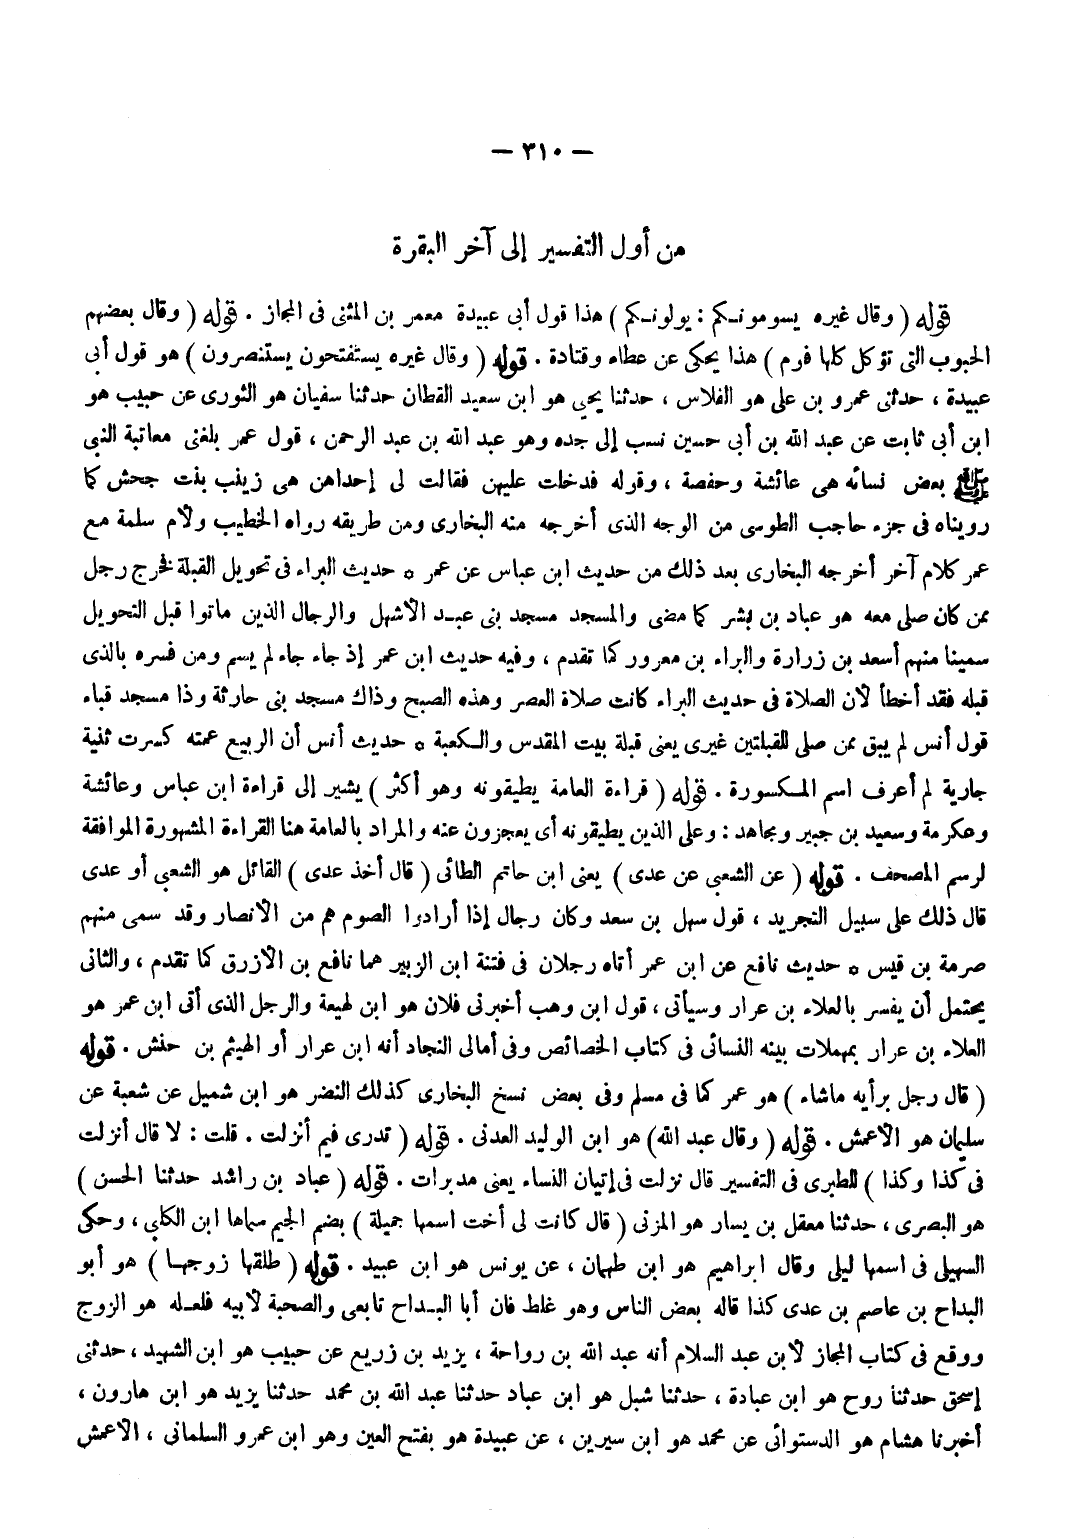 — ٣١٠ —
من أول التفسير إلى آخر البقرة
قوله ( وقال غيره يسومونـكم : يولونـكم ) هذا قول أبى عبيدة معمر بن المثنى فى المجاز . قوله ( وقال بعضهم
الحبوب التى تؤكل كلها فوم ) هذا يحكى عن عطاء وقتادة . قوله ( وقال غيره يستفتحون يستنصرون ) هو قول أبى
عبيدة ، حدثنى عمرو بن على هو الفلاس ، حدثنا يحيى هو ابن سعيد القطان حدثنا سفيان هو الثورى عن حبيب هو
ابن أبى ثابت عن عبد الله بن أبى حسين نسب إلى جده وهو عبد الله بن عبد الرحمن ، قول عمر بلغنى معاتبة النبى
ﷺ بعض نسائه هى عائشة وحفصة ، وقوله فدخلت عليهن فقالت لى إحداهن هى زينب بنت جحش كما
رويناه فى جزء حاجب الطوسى من الوجه الذى أخرجه منه البخارى ومن طريقه رواه الخطيب ولأم سلمة مع
عمر كلام آخر أخرجه البخارى بعد ذلك من حديث ابن عباس عن عمر * حديث البراء فى تحويل القبلة فخرج رجل
ممن كان صلى معه هو عباد بن بشر كما مضى والمسجد مسجد بنى عبـد الأشهل والرجال الذين ماتوا قبل التحويل
سمينا منهم أسعد بن زرارة والبراء بن معرور كما تقدم ، وفيه حديث ابن عمر إذ جاء جاء لم يسم ومن فسره بالذى
قبله فقد أخطأ لأن الصلاة فى حديث البراء كانت صلاة العصر وهذه الصبح وذاك مسجد بنى حارثة وذا مسجد قباء
قول أنس لم يبق ممن صلى للقبلتين غيرى يعنى قبلة بيت المقدس والـكعبة * حديث أنس أن الربيع عمته كسرت ثنية
جارية لم أعرف اسم المـكسورة . قوله ( قراءة العامة يطيقونه وهو أكثر ) يشير إلى قراءة ابن عباس وعائشة
وعكرمة وسعيد بن جبير ومجاهد : وعلى الذين يطيقونه أى يعجزون عنه والمراد بالعامة هنا القراءة المشهورة الموافقة
لرسم المصحف . قوله ( عن الشعبى عن عدى ) يعنى ابن حاتم الطائى ( قال أخذ عدى ) القائل هو الشعبى أو عدى
قال ذلك على سبيل التجريد ، قول سهل بن سعد وكان رجال إذا أرادوا الصوم هم من الأنصار وقد سمى منهم
صرمة بن قيس * حديث نافع عن ابن عمر أتاه رجلان فى فتنة ابن الزبير هما نافع بن الأزرق كما تقدم ، والثانى
يحتمل أن يفسر بالعلاء بن عرار وسيأتى ، قول ابن وهب أخبرنى فلان هو ابن لهيعة والرجل الذى أتى ابن عمر هو
العلاء بن عرار بمهملات بينه النسائى فى كتاب الخصائص وفى أمالى النجاد أنه ابن عرار أو الهيثم بن حنش . قوله
( قال رجل برأيه ماشاء ) هو عمر كما فى مسلم وفى بعض نسخ البخارى كذلك النضر هو ابن شميل عن شعبة عن
سليمان هو الأعمش . قوله ( وقال عبد الله) هو ابن الوليد العدنى . قوله ( تدرى فيم أنزلت . قلت : لا قال أنزلت
فى كذا وكذا ) للطبرى فى التفسير قال نزلت فى إتيان النساء يعنى مدبرات . قوله ( عباد بن راشد حدثنا الحسن )
هو البصرى ، حدثنا معقل بن يسار هو المزنى ( قال كانت لى أخت اسمها جميلة ) بضم الجيم سماها ابن الكلبى ، وحكى
السهيلى فى اسمها ليلى وقال ابراهيم هو ابن طهمان ، عن يونس هو ابن عبيد . قوله ( طلقها زوجهـا ) هو أبو
البداح بن عاصم بن عدى كذا قاله بعض الناس وهو غلط فان أبا البـداح تابعى والصحبة لأبيه فلعـله هو الزوج
ووقع فى كتاب المجاز لابن عبد السلام أنه عبد الله بن رواحة ، يزيد بن زريع عن حبيب هو ابن الشهيد ، حدثنى
إسحق حدثنا روح هو ابن عبادة ، حدثنا شبل هو ابن عباد حدثنا عبد الله بن محمد حدثنا يزيد هو ابن هارون ،
أخبرنا هشام هو الدستوائى عن محمد هو ابن سيرين ، عن عبيدة هو بفتح العين وهو ابن عمرو السلمانى ، الأعمش